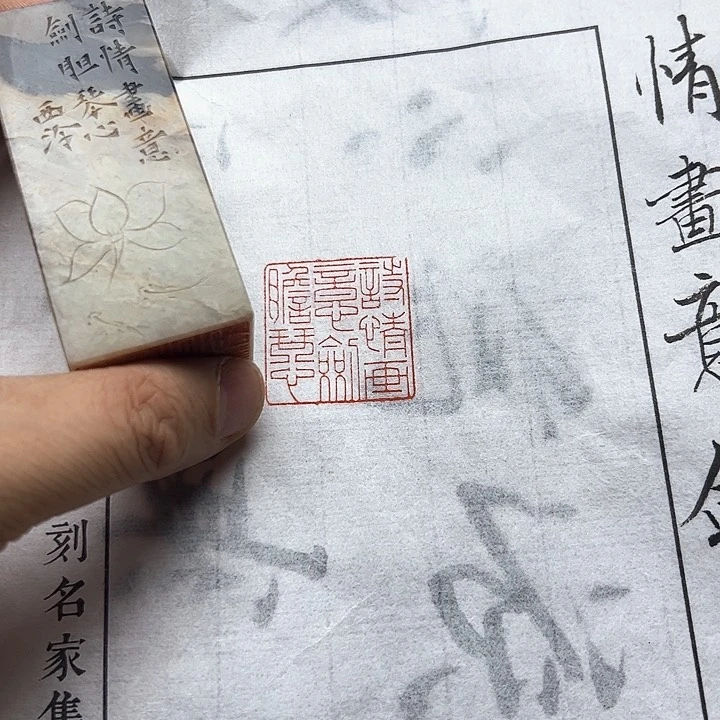 情畫意
詩情畫意
劍胆琴心
西泠
詩情画
意劍
膽琴心
刻名家集